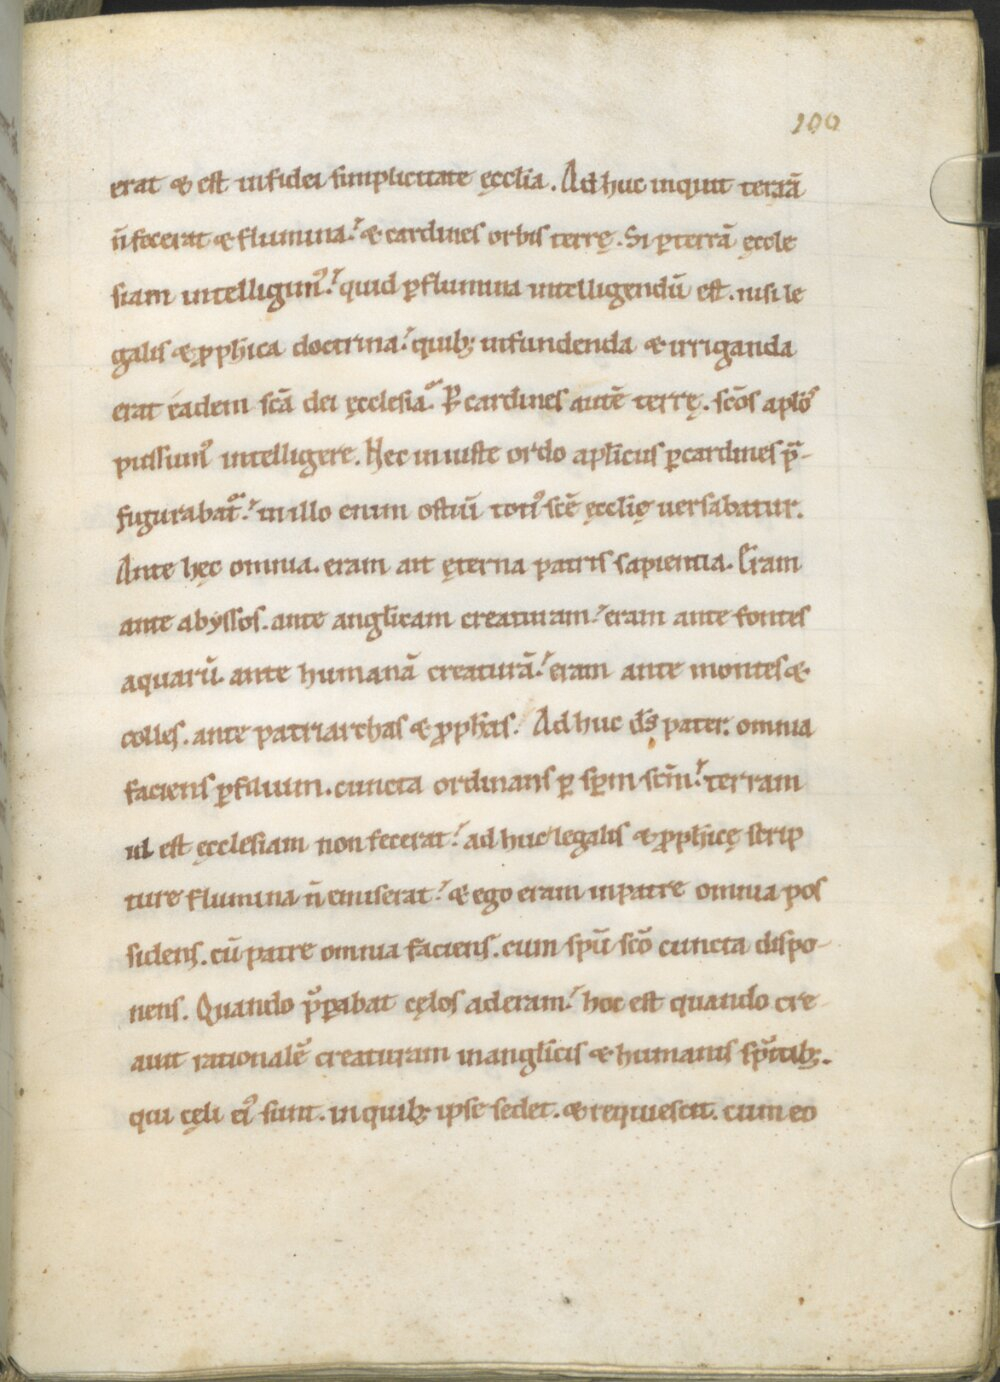 100
erat & est in fidei simplicitate ęcclia. Ad huc inquit terrā
n̄ fecerat & flumina: & cardines orbis terrę. Si ꝑ terrā ęccle
siam intelligimꝰ: quid ꝑ flumina intelligendū est. nisi le
galis & ꝓph̄ica doctrina: quibꝫ infundenda & irriganda
erat eadem sc̄a dei ęcclesia. Ꝑ cardines autē terrę. sc̄os aplōs
possumꝰ intelligere. Nec iniuste ordo aplicus ꝑ cardines p̄-
figurabat᷑: in illo enim ostiū totiꝰ scē ęcclię uersabatur.
Ante hęc omnia. eram ait ęterna patris sapientia. Eram
ante abyssos. ante anglicam creaturam: eram ante fontes
aquarū. ante humanā creaturā: eram ante montes &
colles. ante patriarchas & ꝓph̄as. Ad huc ds̄ pater. omnia
faciens ꝑ filium. cuncta ordinans ꝑ sp̄m sc̄m: terram
id est ęcclesiam non fecerat: ad huc legalis & ꝓph̄icę scrip
ture flumina n̄ emiserat: & ego eram in patre omnia pos
sidens. cū patre omnia faciens. cum spū scō cuncta dispo-
nens. Quando p̄parabat cęlos aderam: hoc est quando cre
auit rationalē creaturam in anglicis & humanis sp̄itibꝫ.
qui cęli eiꝰ sunt. in quibꝫ ipse sedet. & requiescit. cum eo